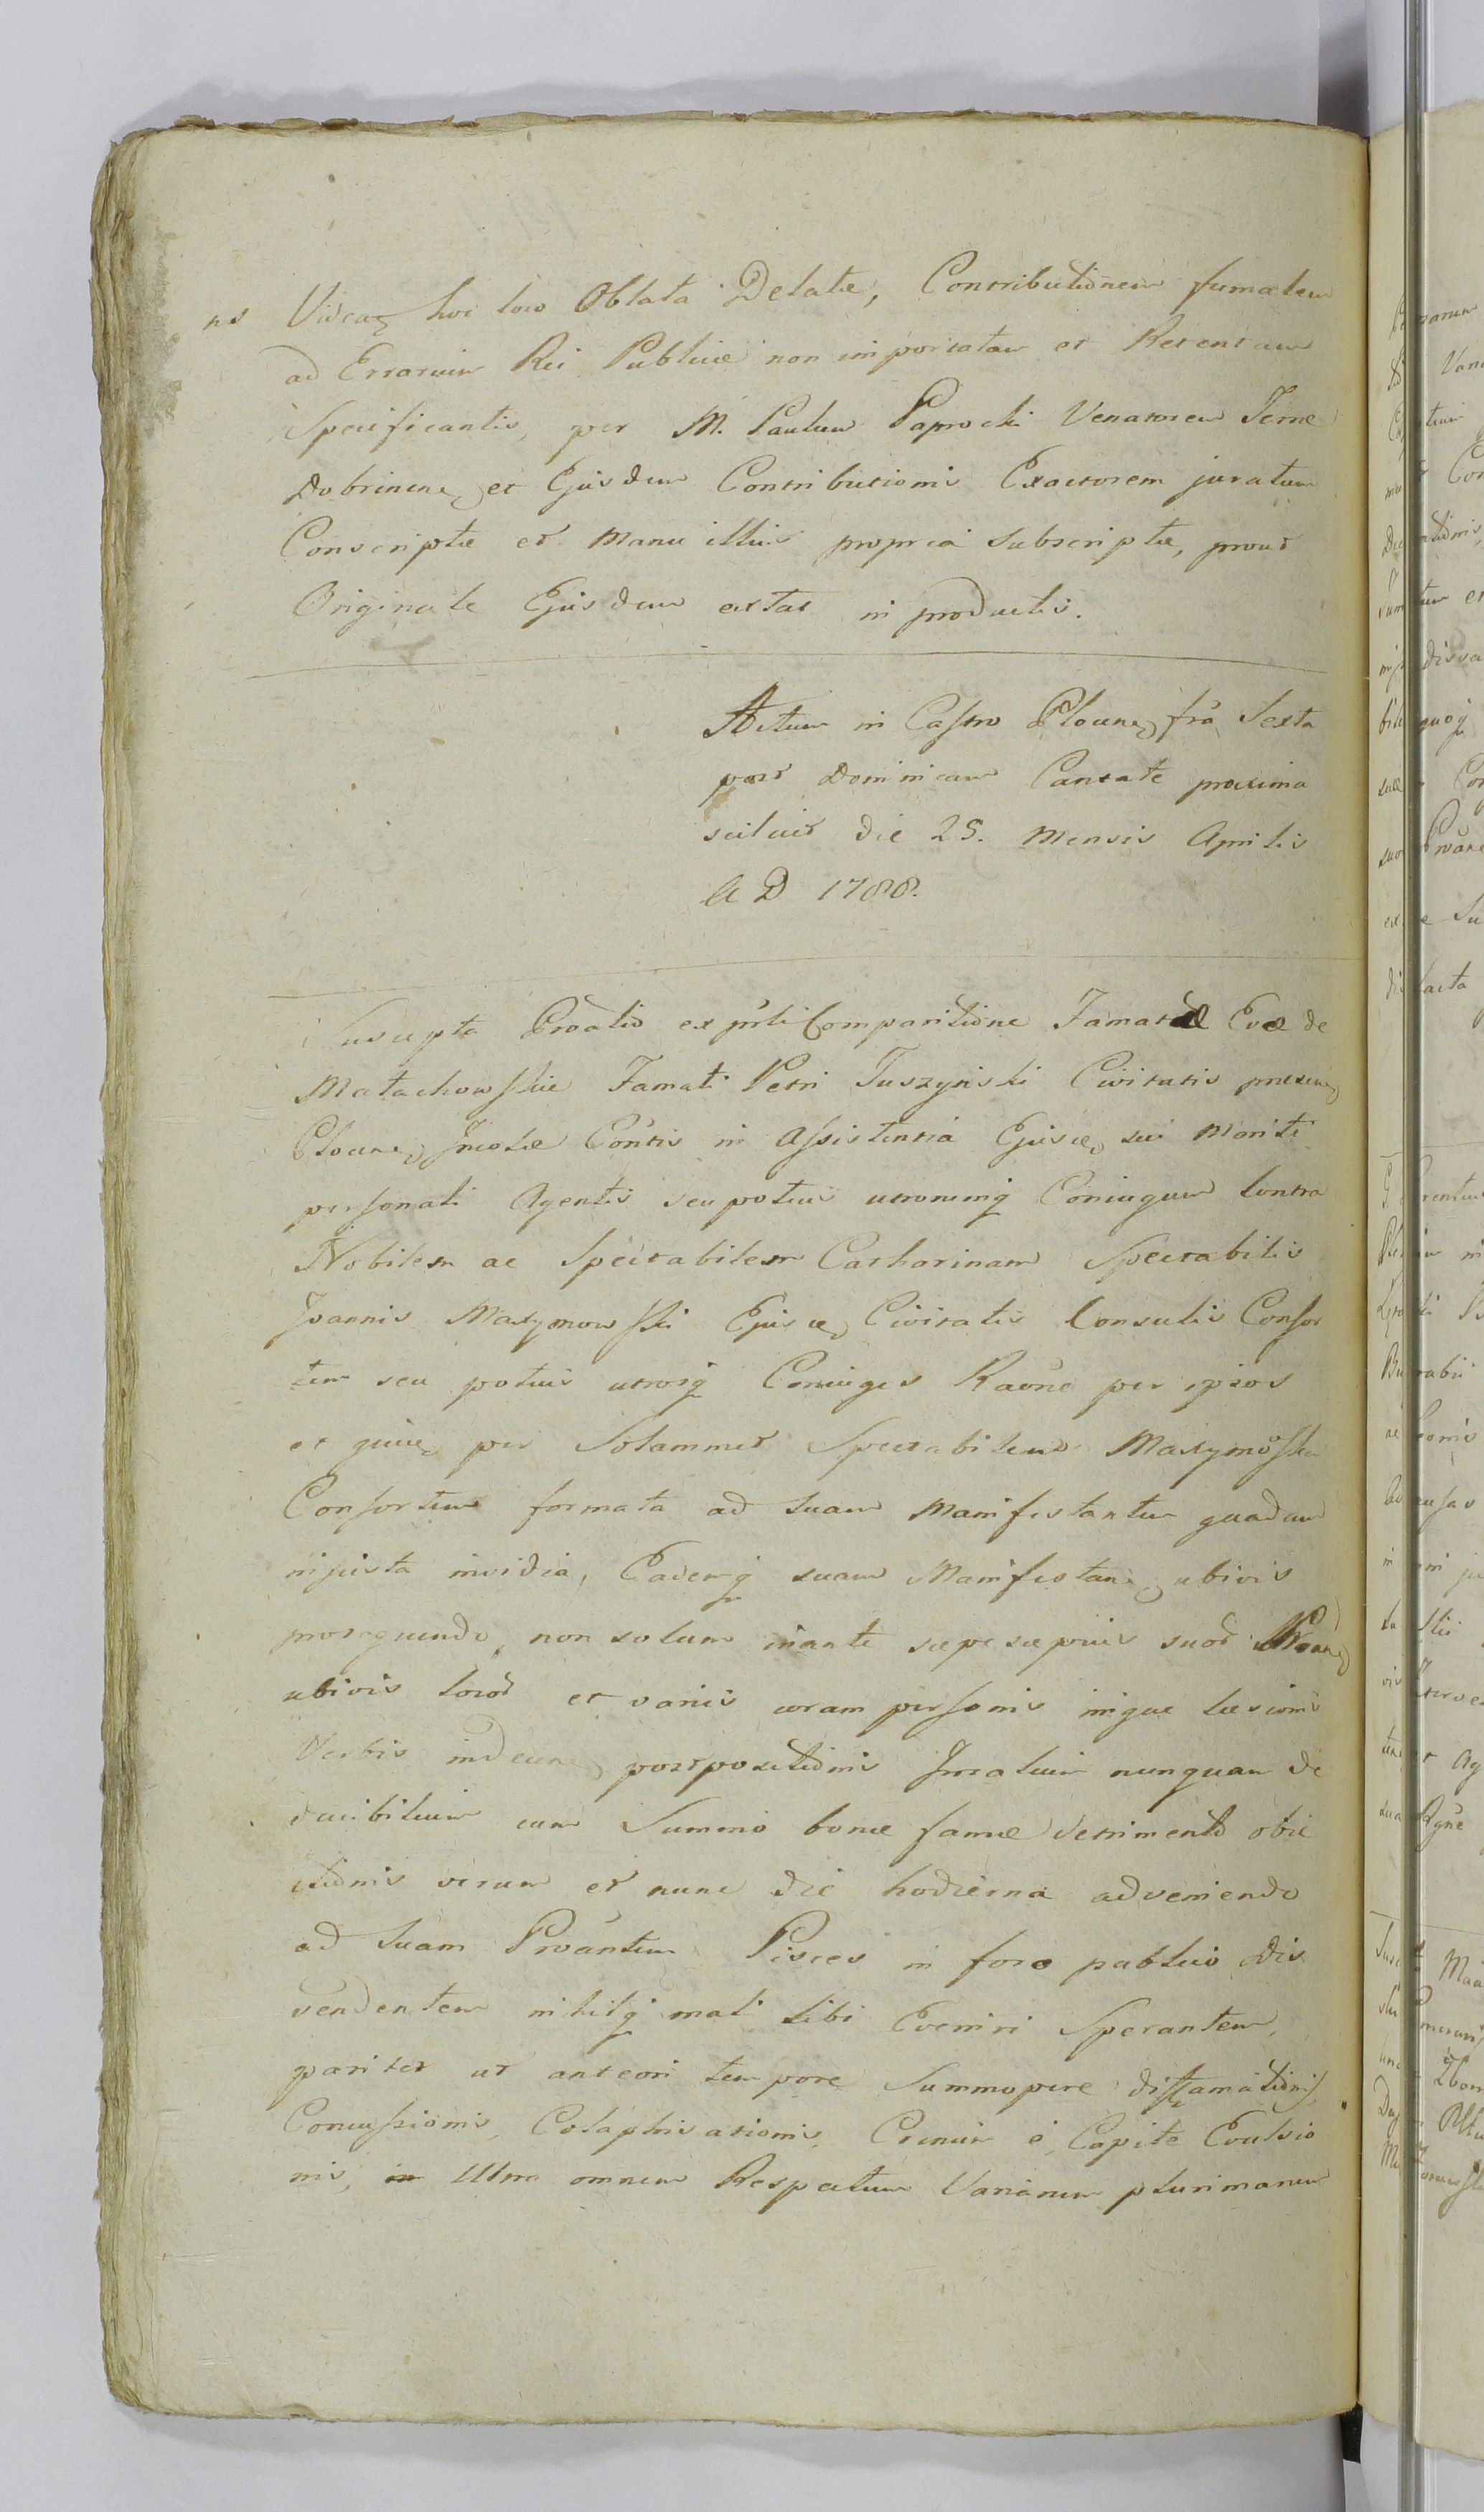 ns Videaz hoc loco Oblata Delatæ, Contributionem fumalem
ad Errarium Rei Publicæ non importatam et Retentam
Specificantis, per M. Paulum Paprocki Venatorem Terræ
Dobrinens, et Ejusdem Contributionis Exactorem juratum
Conscriptæ et Manu illius propria subscriptæ, prout
Originale Ejusdem extat in productis.
Actum in Castro Plocens, fra Sexta
post Dominicam Cantate proxima
scilicet die 25. Mensis Aprilis
A D 1788.
Suscepta Proatio ex prli Comparitione Famatæ Evæ de
Matachowskie Famati Petri Tuszyński Civitatis præsens
Plocens, Incolæ Contis in Assistentia Ejusce, sui Mariti
personali Agentis seu potius utrorumq Coniugum contra
Nobilem ac Spectabilem Catharinam Spectabilis
Joannis Maxymowski Ejusce, Civitatis Consulis Consor
tem seu potius utrosq Coniuges Raone per ipsos
et quive, per Solammet Spectabilem Maxymoska
Consortem formata ad suam Manifestantem quadam
injusta invidia, Eademq suam Manifestan, ubivis
prosequendo, non solum inante sæpe sæpius suor Proan,
ubivis locor et variis coram personis inique læsionis
Verbis indecen, postpositionis Irrealium nunquam de
ducibilium cum Summo bonæ famæ detrimento obie
ctionis verum et nunc die hodierna adveniendo
ad suam Proantem Pisces in foro publico dis
vendentem nihilq mali sibi Eveniri Sperantem,
pariter ut anteori tempore summopere diffamationis,
Concussionis, Colaphisationis, Crinium è Capite Evulsio
nis, in Ultra omnem Respectum Variarum plurimarum